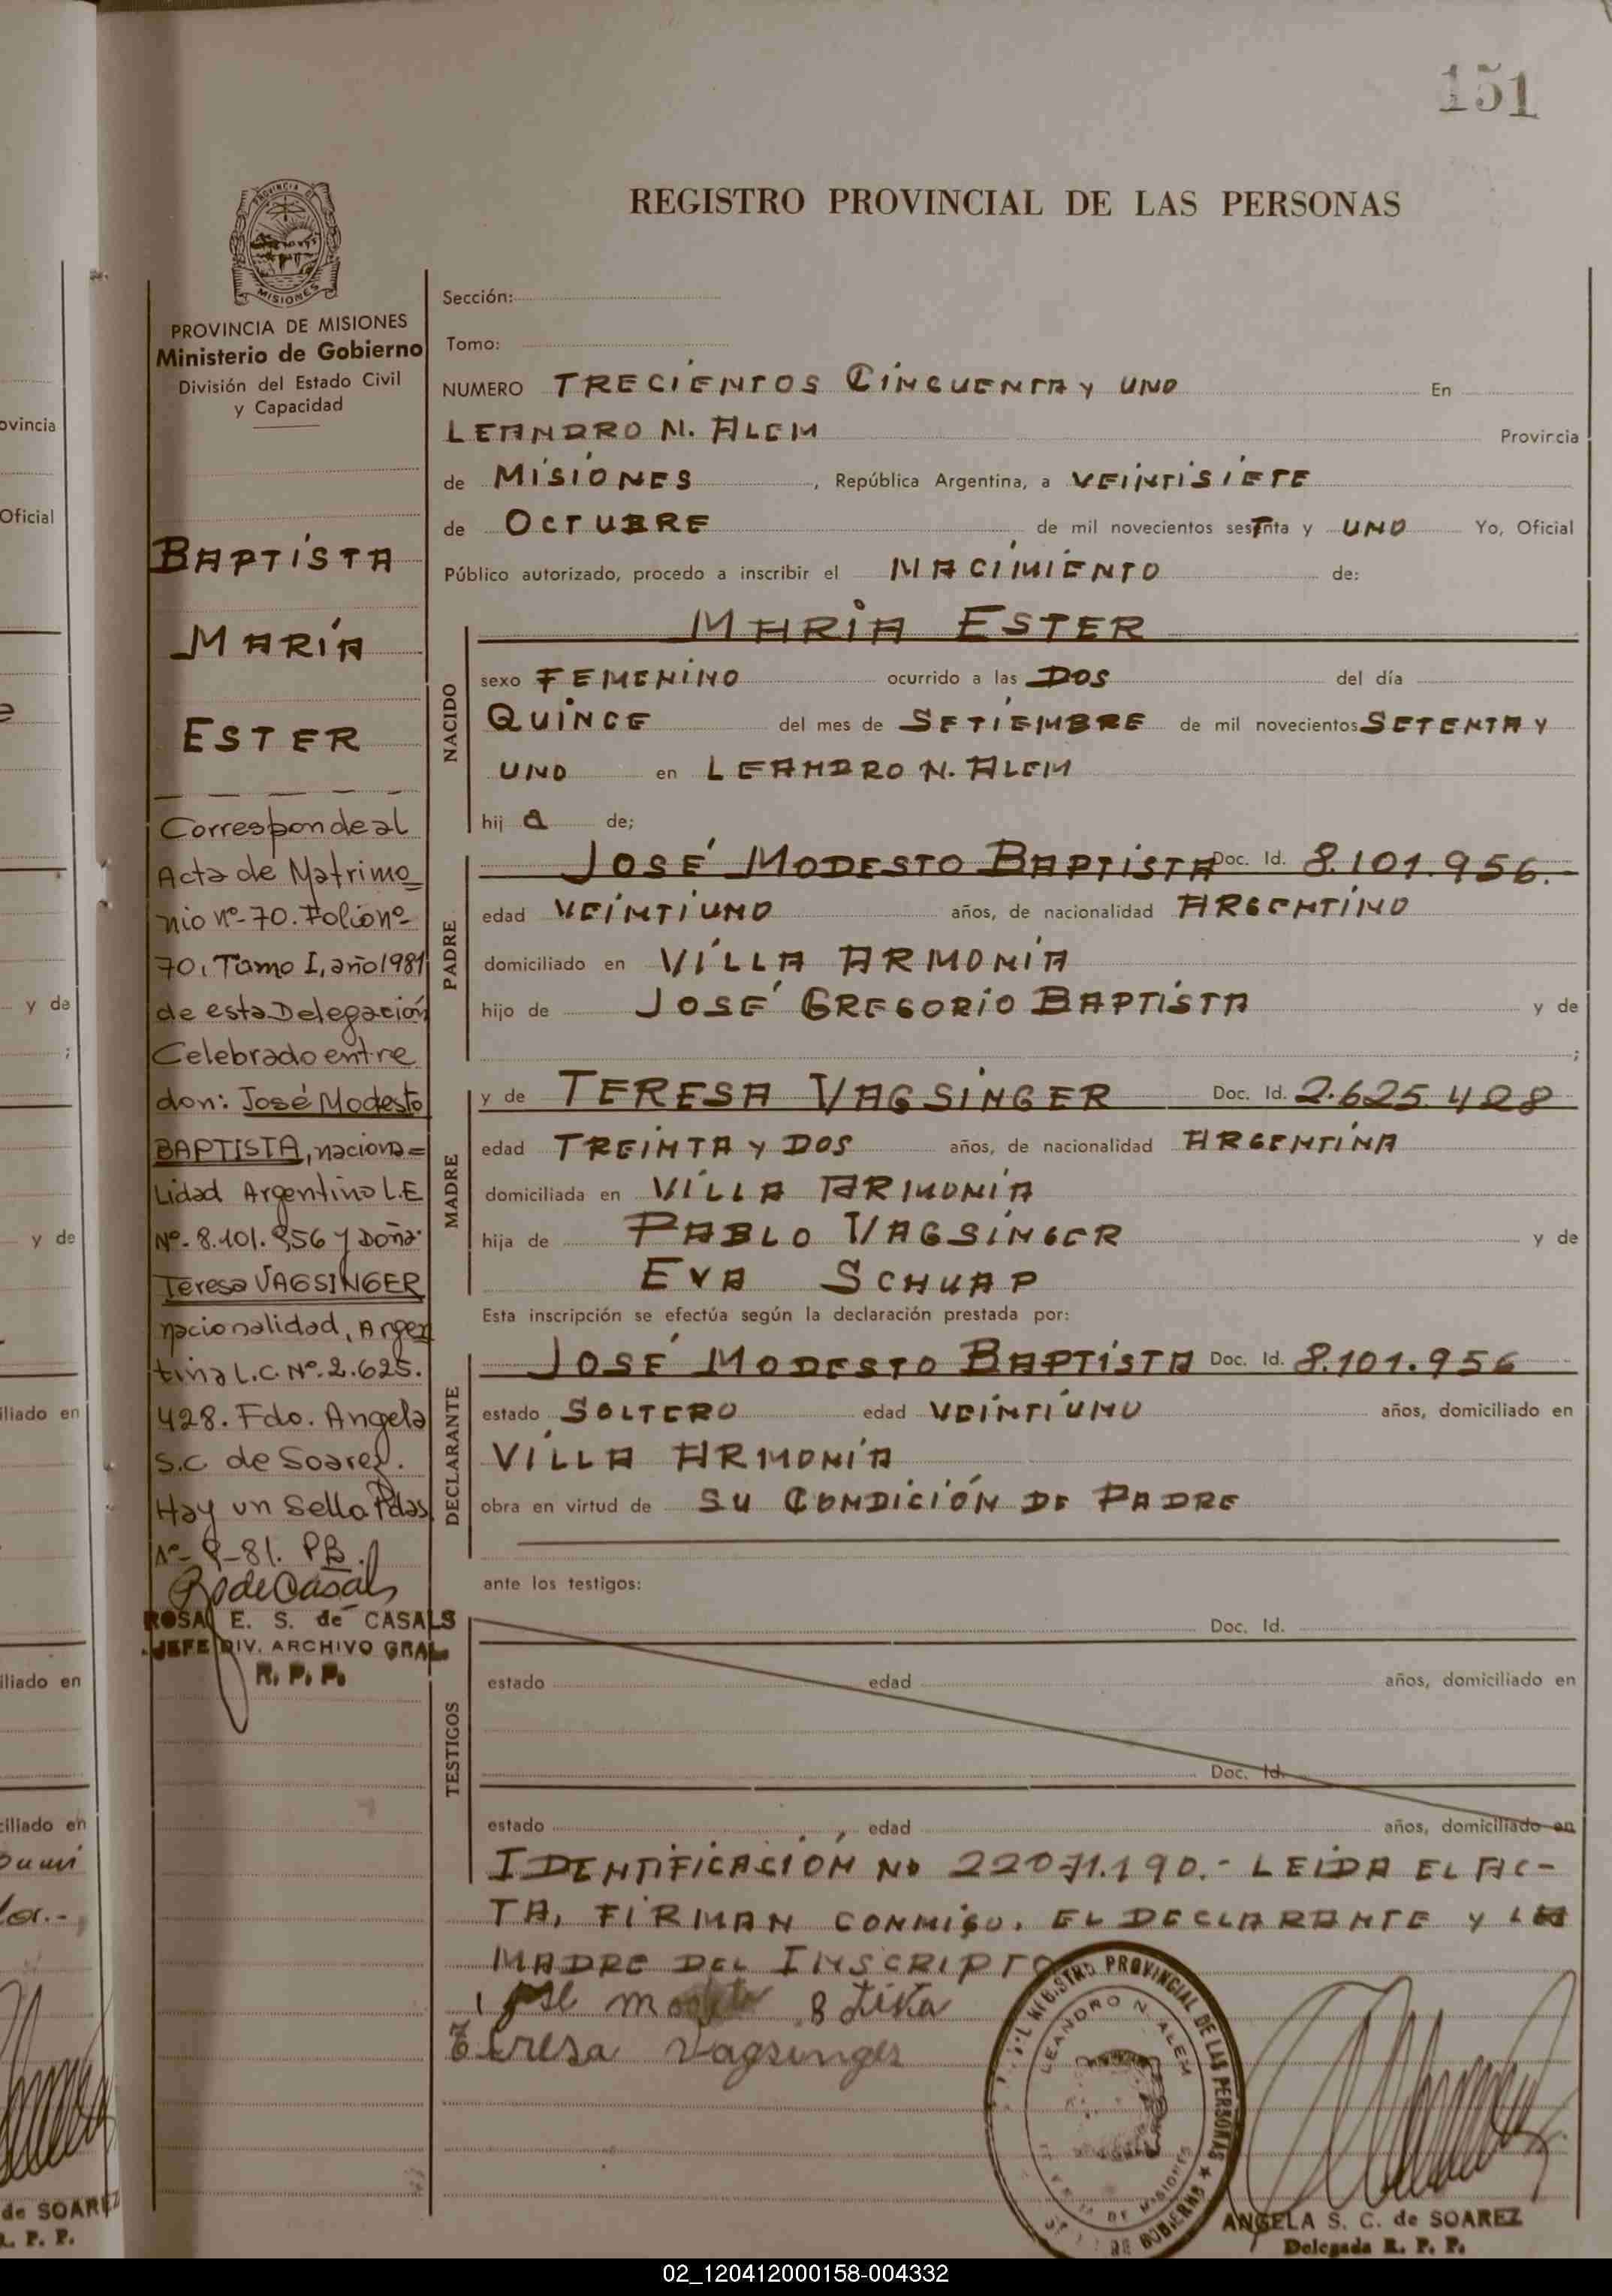 151
REGISTRO PROVINCIAL DE LAS PERSONAS
PROVINCIA DE MISIONES
Ministerio de Gobierno
División del Estado Civil
y Capacidad
BAPTISTA
MARÍA
ESTER
Corresponde al
Acta de Matrimo
nio nº-70. Folio nº
70, Tomo I, año 1981
de esta Delegación
Celebrado entre
don: José Modesto
BAPTISTA, naciona=
lidad Argentino L.E
Nº- 8.101.956 y Doña:
Teresa VAGSINGER
nacionalidad, Argen
tina L.C. Nº. 2.625.
428. Fdo. Angela
S.C de Soarez.
Hay un Sello Pdas
ROSA E. S. de CASALS
JEFE DIV. ARCHIVO GRAL
R. P. P.
Sección:
Tomo:
NUMERO TRECIENTOS CINCUENTA Y UNO En
LEANDRO N. ALEM Provincia
de MISIONES, República Argentina, a VEINTISIETE
de OCTUBRE de mil novecientos sesTnta y UNO Yo, Oficial
Público autorizado, procedo a inscribir el NACIMIENTO de:
NACIDO
MARIA ESTER
sexo FEMENINO ocurrido a las DOS del día
QUINCE del mes de SETIEMBRE de mil novecientos SETENTA Y
UNO en LEANDRO N. ALEM
hij a de;
PADRE
JOSÉ MODESTO BAPTISTA Doc. Id. 8.101.956.-
edad VEINTIUNO años, de nacionalidad ARGENTINO
domiciliado en VILLA ARMONIA
hijo de JOSÉ GREGORIO BAPTISTA y de
;
MADRE
y de TERESA VAGSINGER Doc. Id. 2.625.428
edad TREINTA Y DOS años, de nacionalidad ARGENTINA
domiciliada en VILLA ARMONIA
hija de PABLO VAGSINGER y de
EVA SCHUAP
Esta inscripción se efectúa según la declaración prestada por:
DECLARANTE
JOSÉ MODESTO BAPTISTA Doc. Id. 8.101.956
estado SOLTERO edad VEINTIUNO años, domiciliado en
VILLA ARMONIA
obra en virtud de SU CONDICIÓN DE PADRE
ante los testigos:
TESTIGOS
Doc. Id.
estado edad años, domiciliado en
Doc. Id.
estado edad años, domiciliado en
IDENTIFICACIÓN No 22071.190.- LEIDA EL AC-
TA, FIRMAN CONMIGO, EL DECLARANTE Y LA
MADRE DEL INSCRIPTO
Teresa Vagsinger
REGISTRO PROVINCIAL DE LAS PERSONAS
LEANDRO N. ALEM
DE MISIONES
DE GOBIERNO
ANGELA S. C. de SOAREZ
Delegada R. P. P.
ovincia
Oficial
y de
;
y de
iliado en
iliado en
ciliado en
de SOAREZ
R. P. P.
02_120412000158-004332